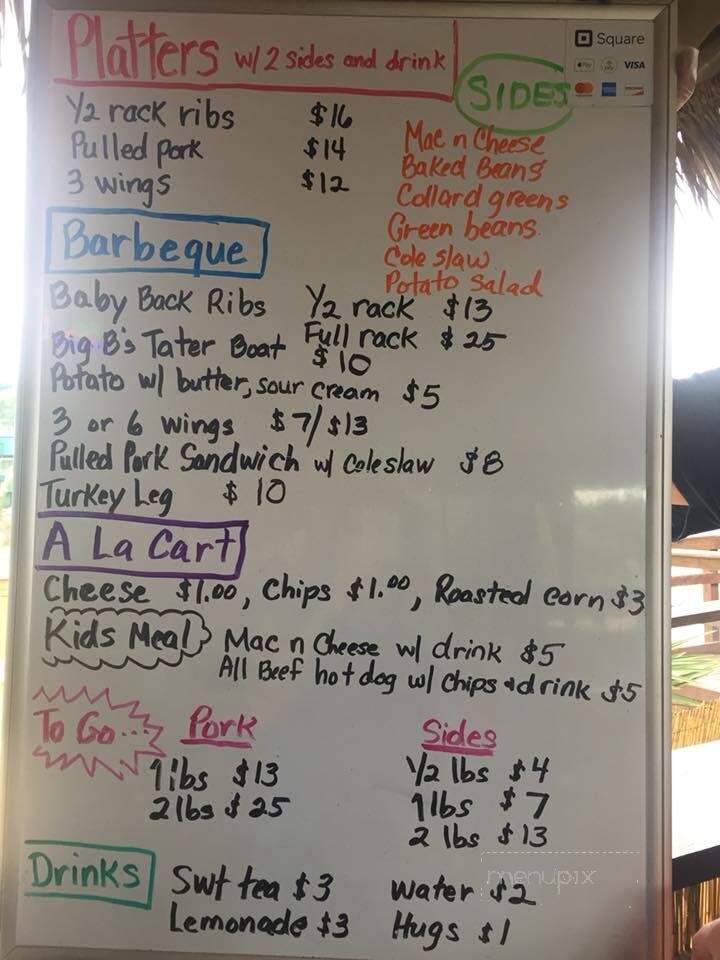 Platters w/ 2 sides and drink
Square
Pay
VISA
SIDES
1/2 rack ribs $16
Pulled pork $14
3 wings $12
Mac n Cheese
Baked Beans
Collard greens
Green beans
Cole slaw
Potato Salad
Barbeque
Baby Back Ribs 1/2 rack $13
Full rack $25
Big B's Tater Boat $10
Potato w/ butter, sour cream $5
3 or 6 wings $7/$13
Pulled Pork Sandwich w/ coleslaw $8
Turkey Leg $10
A La Cart
Cheese $1.00, Chips $1.00, Roasted corn $3
Kids Meal Mac n Cheese w/ drink $5
All Beef hot dog w/ chips & drink $5
To Go... Pork Sides
1 lbs $13 1/2 lbs $4
2 lbs $25 1 lbs $7
2 lbs $13
Drinks Swt tea $3 Water $2
Lemonade $3 Hugs $1
menupix